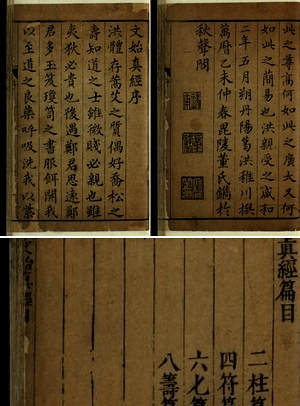 文始真經序
洪體存蒿艾之質偶好喬松之
壽知道之士雖微賤必親也雖
夷狄必貴也後遇鄭君思遠鄭
君多玉笈瓊笥之書服餌開我
以至道之良藥呼吸洗我以紫
此之尊高何如此之廣大又何
如此之簡易也洪親受之咸和
二年五月朔丹陽葛洪稚川撰
萬曆乙未仲春毘陵董氏鐫於
秋聲閣
真經篇目
二柱篇
四符篇
六匕篇
八籌篇